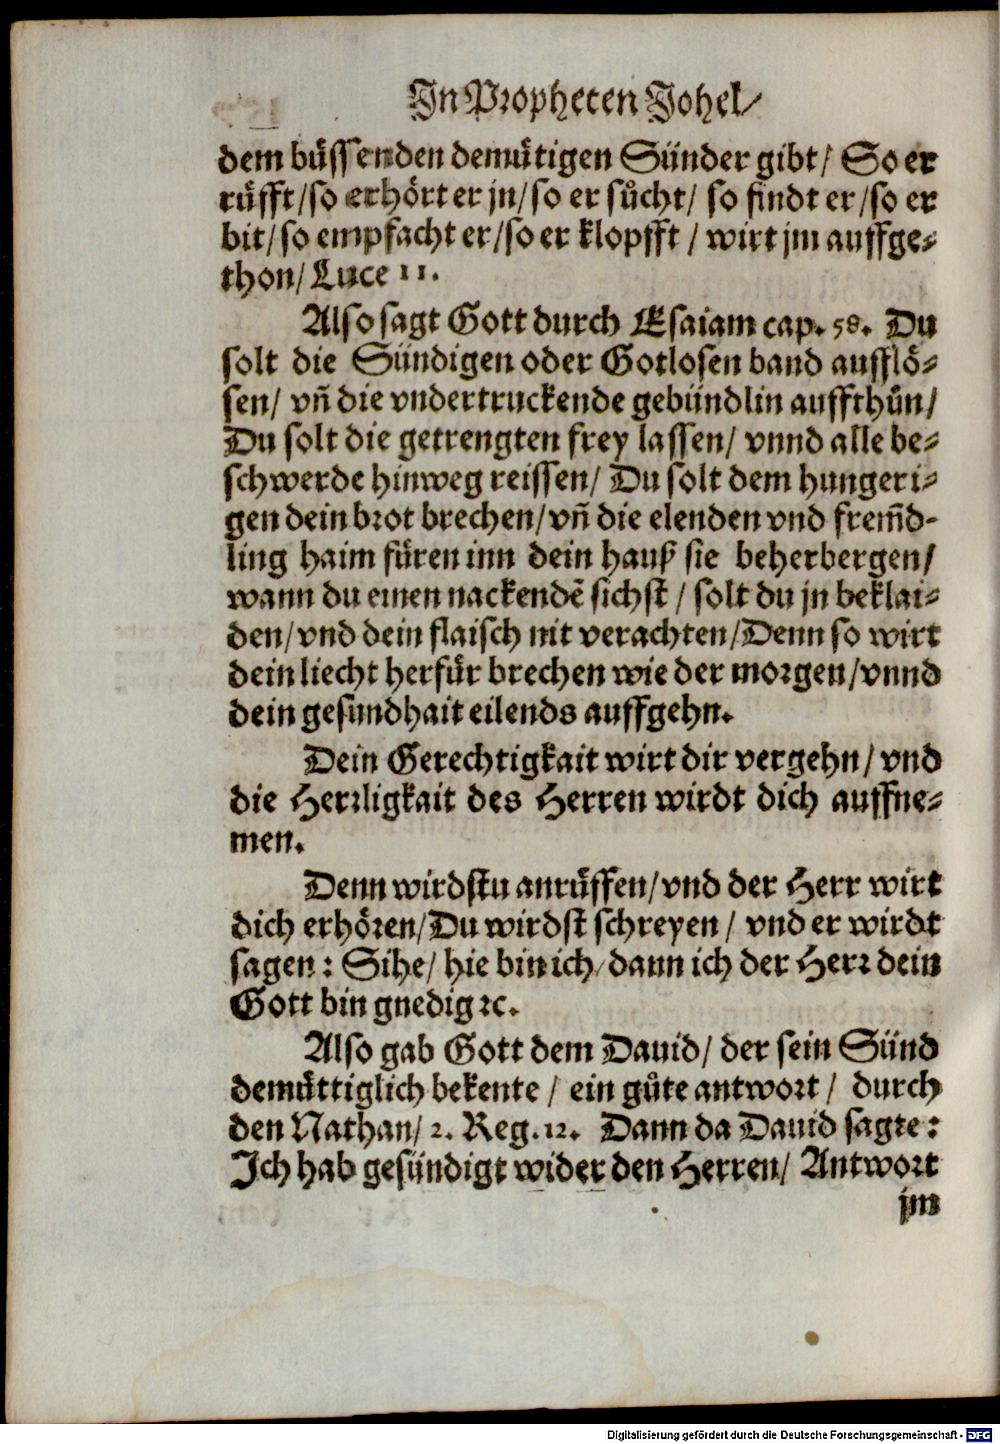 In Propheten Johel/
dem buͤssenden demuͤtigen Sünder gibt/ So er
ruͤfft/so erhoͤrt er jn/so er suͦcht/ so findt er/so er
bit/so empfacht er/so er klopfft / wirt jm auffge⸗
thon/ Luce 11.
Also sagt Gott durch Esaiam cap. 58. Du
solt die Sündigen oder Gotlosen band auffloͤ⸗
sen/ vñ die vndertruckende gebündlin auffthuͦn/
Du solt die getrengten frey lassen/ vnnd alle be⸗
schwerde hinweg reissen/ Du solt dem hungeri⸗
gen dein brot brechen/vñ die elenden vnd frem̃d-
ling haim fuͤren inn dein hauß sie beherbergen/
wann du einen nackendẽ sichst / solt du jn beklai⸗
den/vnd dein flaisch nit verachten/Denn so wirt
dein liecht herfuͤr brechen wie der morgen/vnnd
dein gesundhait eilends auffgehn.
Dein Gerechtigkait wirt dir vergehn/ vnd
die Herrligkait des Herren wirdt dich auffne⸗
men.
Denn wirdstu anruͤffen/vnd der Herr wirt
dich erhoͤren/Du wirdst schreyen / vnd er wirdt
sagen: Sihe/ hie bin ich/dann ich der Herr dein
Gott bin gnedig ꝛc.
Also gab Gott dem Dauid/ der sein Sünd
demuͤttiglich bekente / ein guͦte antwort / durch
den Nathan/ 2. Reg. 12. Dann da Dauid sagte:
Ich hab gesündigt wider den Herren/ Antwort
jm
Digitalisierung gefördert durch die Deutsche Forschungsgemeinschaft - DFG